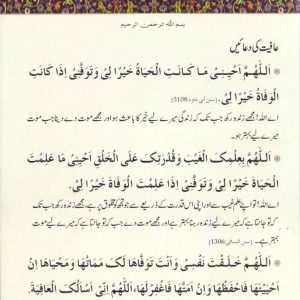 بسم اللہ الرحمن الرحیم
عافیت کی دعائیں
اَللّٰهُمَّ اَحْيِنِيْ مَا كَانَتِ الْحَيَاةُ خَيْرًا لِيْ وَتَوَفَّنِيْ اِذَا كَانَتِ
الْوَفَاةُ خَيْرًا لِيْ. [سنن ابی داؤد:3108]
اے اللہ! مجھے زندہ رکھ جب تک کہ زندگی میرے لیے خیر کا باعث ہو اور مجھے موت دے دینا جب موت
میرے لیے بہتر ہو۔
اَللّٰهُمَّ بِعِلْمِكَ الْغَيْبَ وَقُدْرَتِكَ عَلَى الْخَلْقِ اَحْيِنِيْ مَا عَلِمْتَ
الْحَيَاةَ خَيْرًا لِيْ وَتَوَفَّنِيْ اِذَا عَلِمْتَ الْوَفَاةَ خَيْرًا لِيْ.
اے اللہ! تو اپنے علم غیب سے اور اپنی اس قدرت کے ذریعے سے جو تجھے مخلوق پر ہے، مجھے زندہ رکھ جب تک
کہ تو جانتا ہے کہ میرے لیے زندہ رہنا بہتر ہے اور مجھے موت دے جب کہ تو جانتا ہے کہ میرے لیے موت
بہتر ہے۔ [سنن النسائی:1306]
اَللّٰهُمَّ خَلَقْتَ نَفْسِيْ وَاَنْتَ تَوَفَّاهَا لَكَ مَمَاتُهَا وَمَحْيَاهَا اِنْ
اَحْيَيْتَهَا فَاحْفَظْهَا وَاِنْ اَمَتَّهَا فَاغْفِرْ لَهَا، اَللّٰهُمَّ اِنِّيْ اَسْاَلُكَ الْعَافِيَةَ.